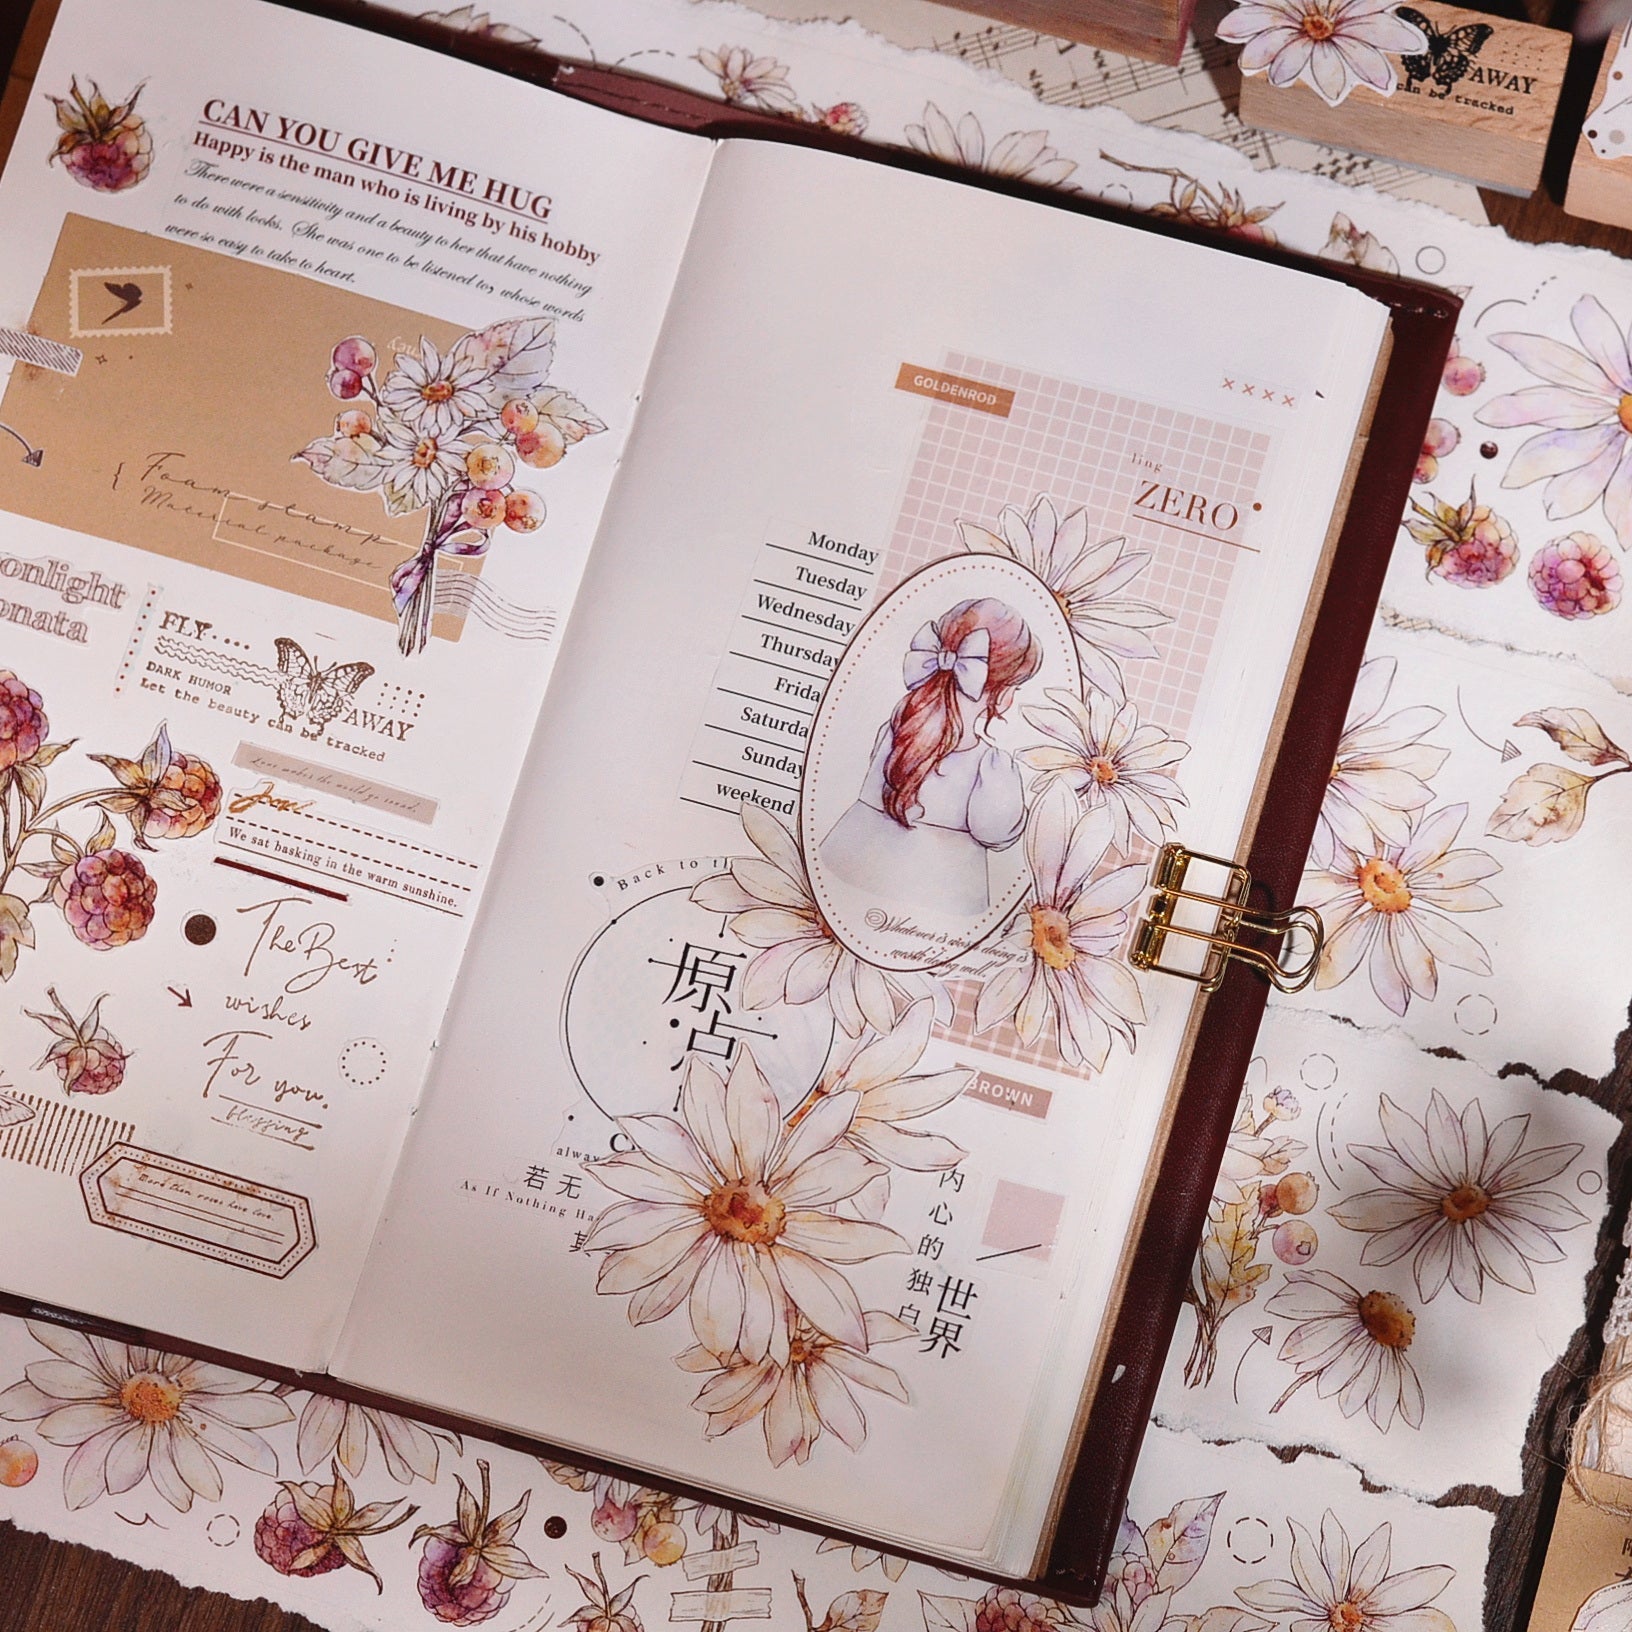 CAN YOU GIVE ME HUG
Happy is the man who is living by his hobby
There were a sensitivity and a beauty to her that have nothing
to do with looks. She was one to be listened to, whose words
were so easy to take to heart.
Foam stamp
Material package
onlight
onata
FLY....
DARK HUMOR
Let the beauty can be tracked
AWAY
Love makes the world go round.
We sat basking in the warm sunshine.
The Best
wishes
For you.
blessing
More than roses have love.
GOLDENROD
××××
ling
ZERO
Monday
Tuesday
Wednesday
Thursday
Frida
Saturda
Sunday
weekend
Whatever is worth doing is
worth doing well.
Back to th
原点
BROWN
alway
若无
As If Nothing Ha
内心的独白
世界
AWAY
can be tracked